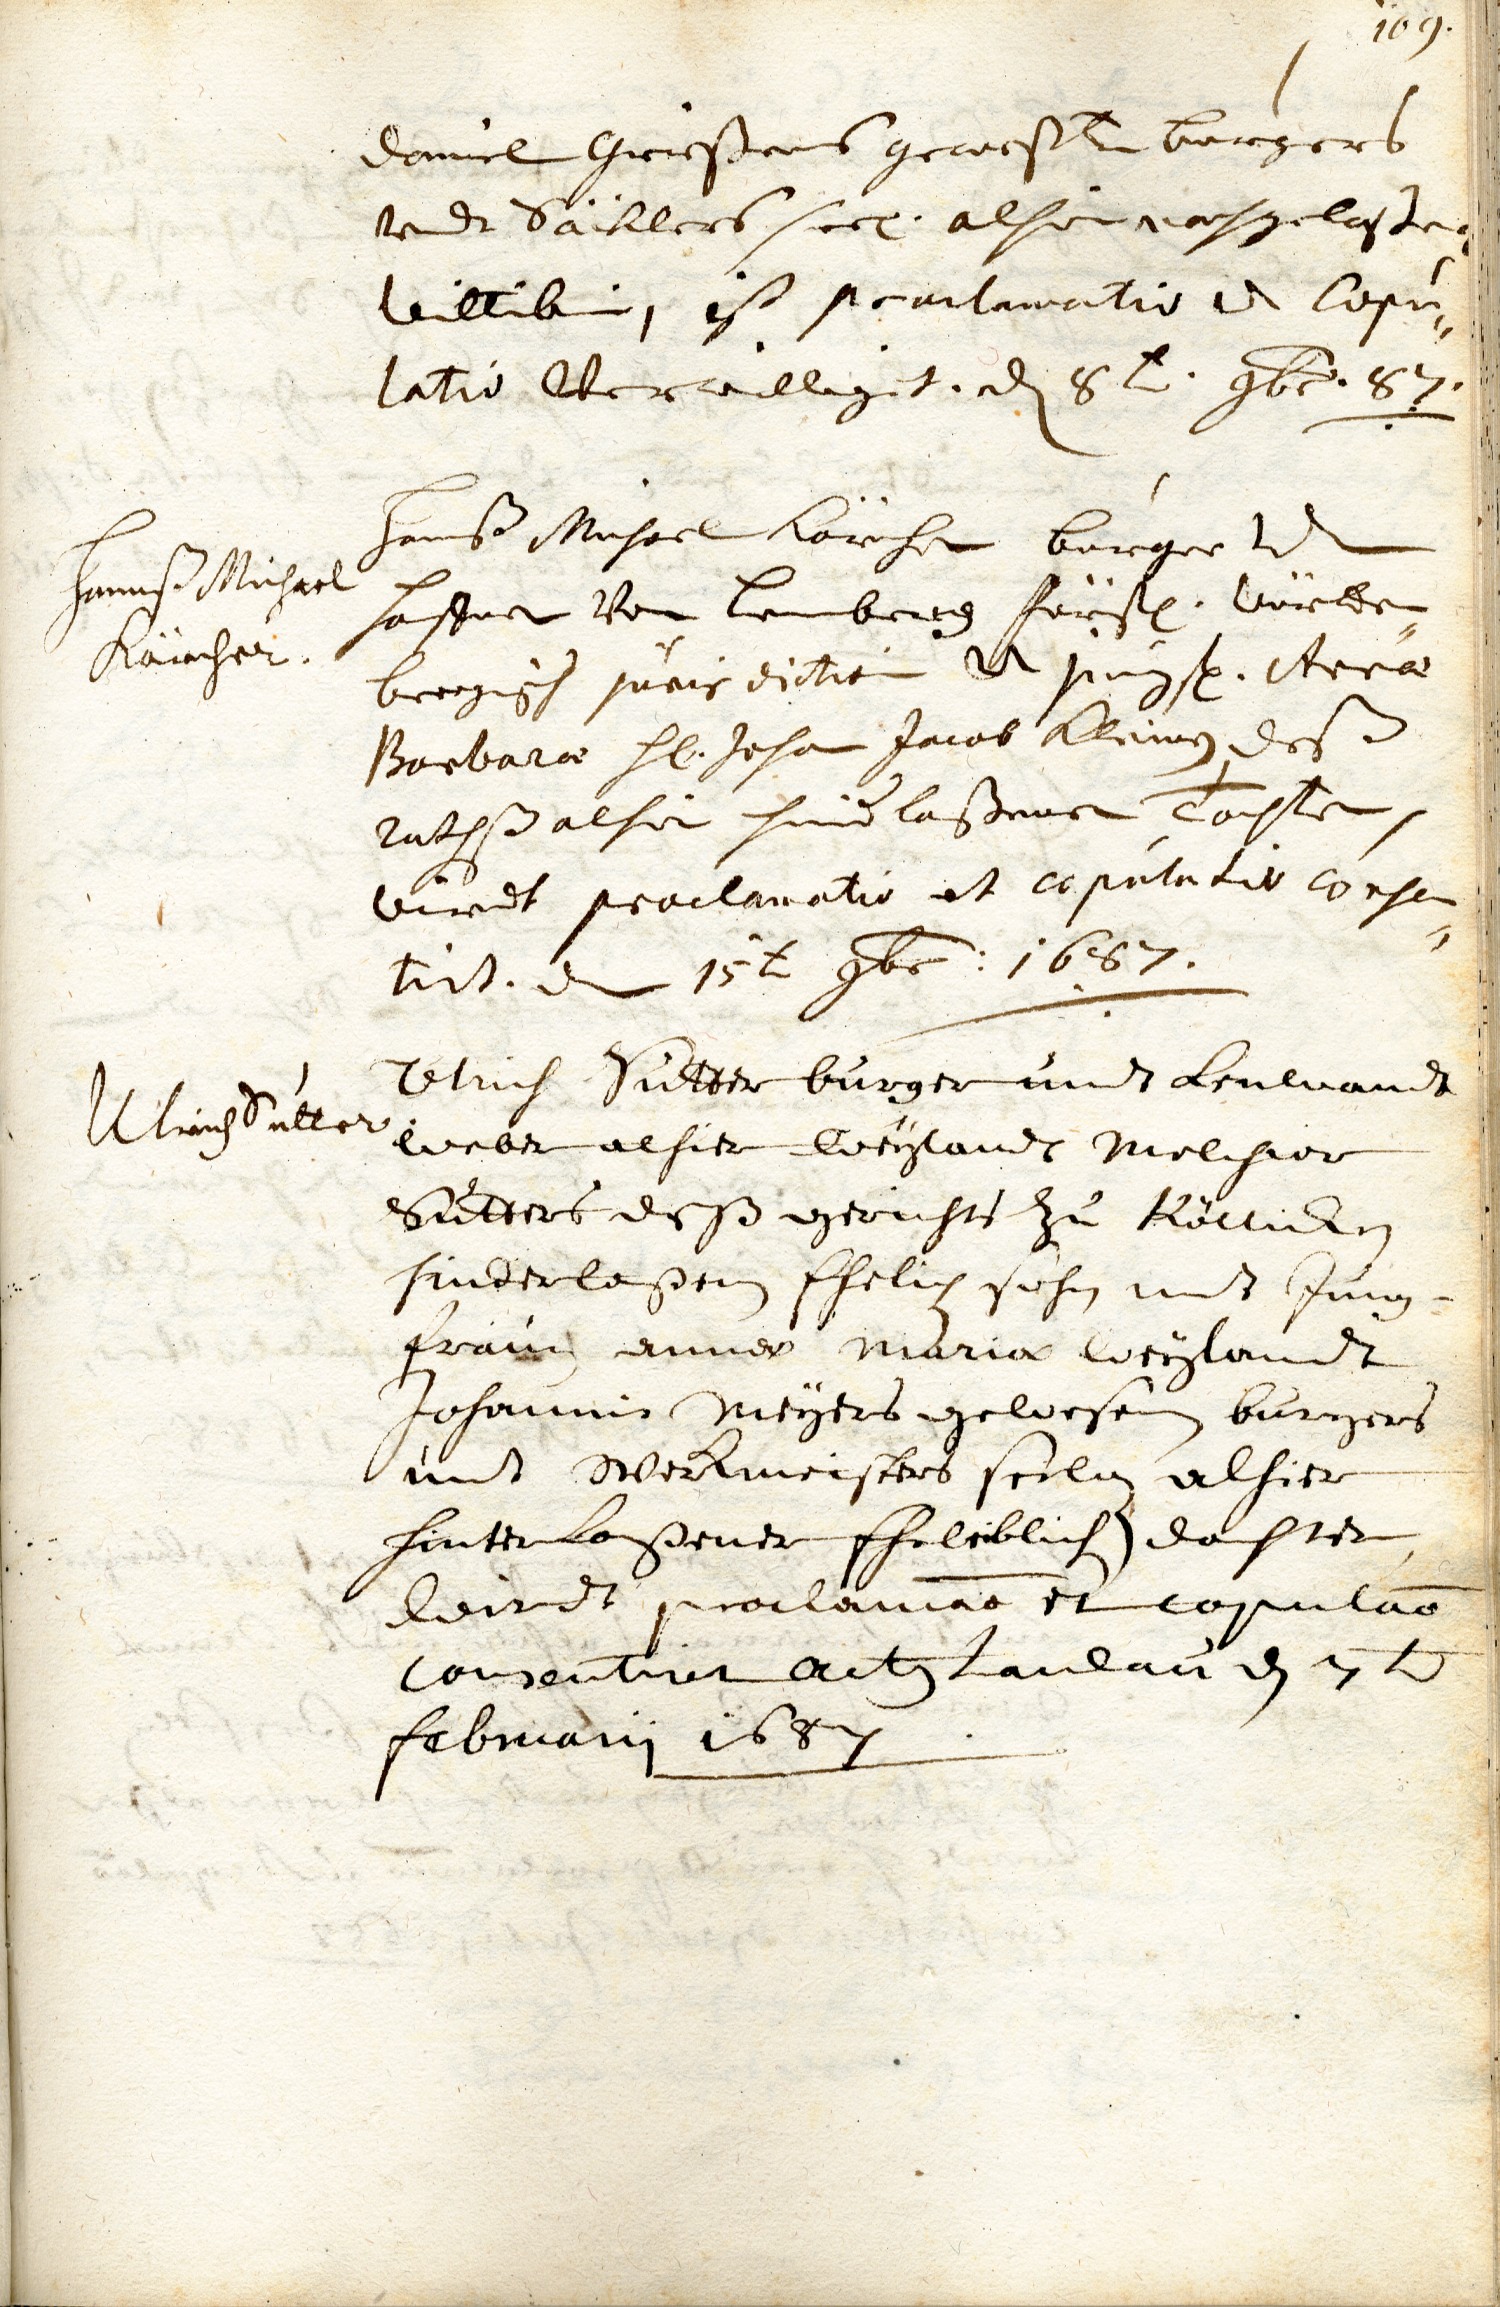 109.
Daniel Griessens geweßten burgers
undt Säcklers seel. alhier nachgelaßene
Wittibin, ist proclamatio et Copu„
latio Verwilliget. d 8t. 9br. 87.
Hannß Michael Kärcher.
Hanß Michael Kärcher burger undt
haffner Von Lemberg Fürstl. Würten„
bergisch jurisdiction mit jungfr. Anna
Barbara hl. Johan Jacob Kleinen deß
rathß alhier hinderlaßener Tochter,
wirdt proclamatio et copulatio consen„
tirt. den 15t 9br: 1687.
Ulrich Sutter
Ulrich Sutter burger undt Leinwandt
weber alhier weylandt Melchior
Sutters deß gerichts zu Kölliken
hinderlaßen Ehelich sohn mit Jung-
frauen anna Maria weylandt
Johannis Meyers gewesenen burgers
undt Werkmeisters seelig alhier
hinterlaßener Eheleiblich dochter,
Wirdt proclamao et copulao
consentiret Act Landau d 7t
februarij 1687